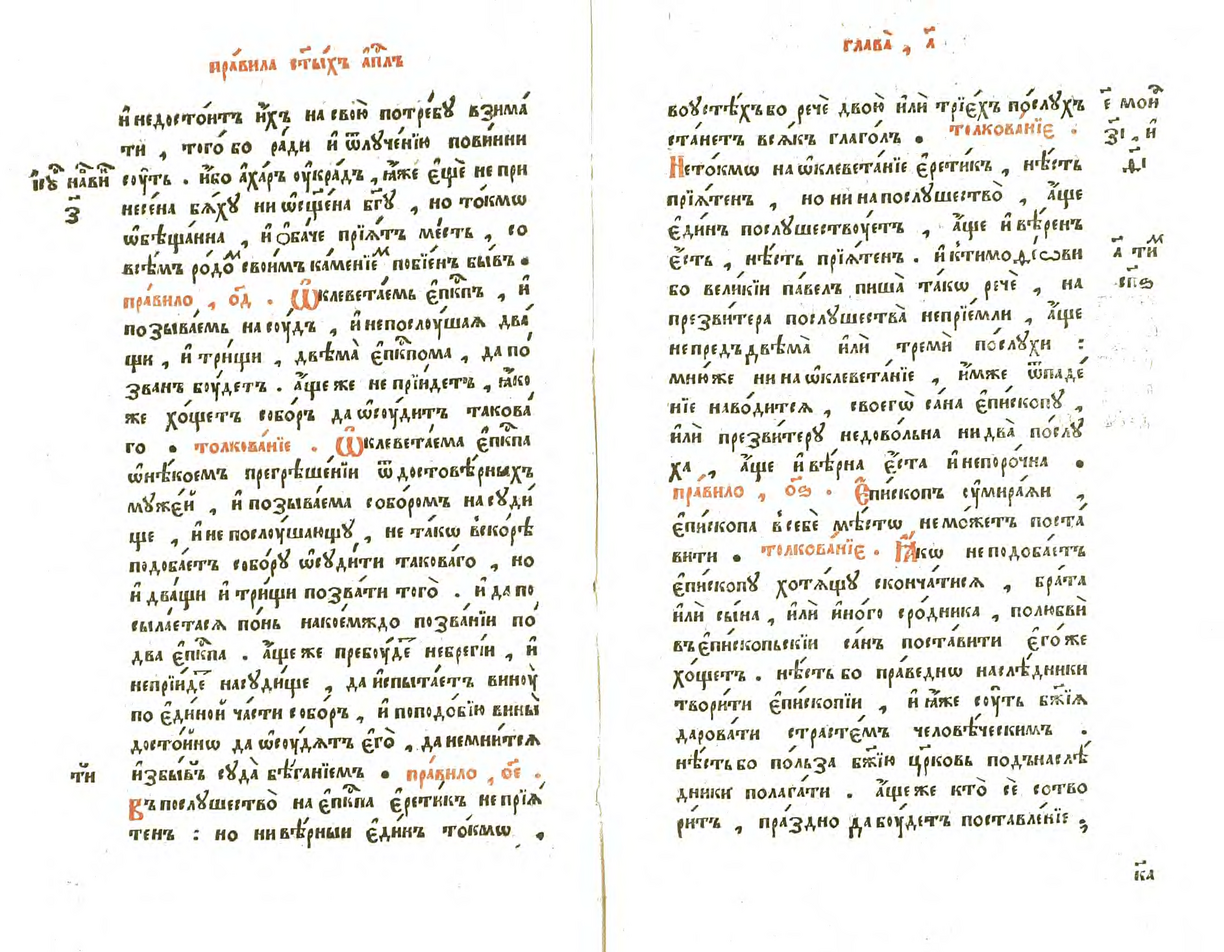 пра́вила ст҃ы́хъ а҆пⷭ҇лъ
и҆ недосто́итъ и҆́хъ на свою̀ потре́бꙋ взима́
ти , того̀ бо ра́ди и҆ ѿлꙋче́нїю пови́нни
сꙋ́ть . и҆́бо а҆ха́ръ оу҆кра́дъ , ꙗ҆́же є҆щѐ не при
і҆иⷭ҇ꙋ на́виⷩ҇
з҃
несена̀ бѧ́хꙋ ни ѡ҆сщ҃е́на бг҃ꙋ , но то́кмѡ
ѡ҆бѣща́нна , и҆ ѻ҆ба́че прїѧ́тъ ме́сть , со
всѣ́мъ ро́доⷨ свои́мъ ка́менїеⷨ побїе́нъ бы́въ .
пра́вило , о҃д . Ѡ҆клевета́емь є҆пⷭ҇кпъ , и҆
позыва́емь на сꙋ́дъ , и҆ непослꙋ́шаѧ два́
щи , и҆ три́щи , двѣма̀ є҆пⷭ҇кпома , да по
зва́нъ бꙋ́детъ . а҆́ще же не прїи́детъ , ꙗ҆́ко
же хо́щетъ собо́ръ да ѡ҆сꙋ́дитъ такова́
го . толкова́нїе . Ѡ҆клевета́ема є҆пⷭ҇кпа
ѡ҆ нѣ́коемъ прегрѣше́нїи ѿ достовѣ́рныхъ
мꙋже́й , и҆ позыва́ема собо́ромъ на сꙋди́
ще , и҆ не послꙋ́шающꙋ , не та́кѡ вско́рѣ
подоба́етъ собо́рꙋ ѡ҆сꙋди́ти такова́го , но
и҆ два́щи и҆ три́щи позва́ти того̀ . и҆ да по
сыла́етасѧ по́нь на кое́мждо позва́нїи по
два̀ є҆пⷭ҇кпа . а҆́ще же пребꙋ́де небрегі́и , и҆
непрїи́де насꙋди́ще , да и҆спыта́етъ винꙋ̀
по є҆ди́ной ча́сти собо́ръ , и҆ поподо́бїю вины̀
досто́йнѡ да ѡ҆сꙋ́дѧтъ є҆го̀ , да немни́тсѧ
и҆збы́въ сꙋда̀ бѣ́ганїемъ . пра́вило , о҃е .
Въ послꙋ́шество̀ на є҆пⷭ҇кпа є҆рети́къ не прїѧ́
тенъ : но ни вѣ́рныи є҆ди́нъ то́кмѡ ,
глава̀ , а҃
воꙋстѣ́хъ бо речѐ двою̀ и҆лѝ трїе́хъ по́слꙋхъ
ста́нетъ всѧ́къ глаго́лъ . толкова́нїе .
Не то́кмѡ на ѡ҆клевета́нїе є҆рети́къ , нѣ́сть
прїѧ́тенъ , но ни на послꙋ́шество̀ , а҆́ще
є҆ди́нъ послꙋ́шествꙋетъ , а҆́ще и҆ вѣ́ренъ
є҆́сть , нѣ́сть прїѧ́тенъ . и҆ к тимоѳе́ѡви
бо вели́кїи па́велъ пиша̀ та́кѡ речѐ , на
презви́тера послꙋ́шества̀ непрїе́мли , а҆́ще
не предъ двѣма̀ и҆лѝ тремѝ по́слꙋхи :
мно́же ни на ѡ҆клевета́нїе , и҆́мже ѿпаде́
нїе наво́дитсѧ , своегѡ̀ са́на є҆пи́скопꙋ ,
и҆лѝ презви́терꙋ недово́льна ни два̀ по́слꙋ
ха , а҆́ще и҆ вѣ́рна є҆́ста и҆ непоро́чна .
пра́вило , о҃ѕ . Є҆пи́скопъ оу҆мира́ѧи ,
є҆пи́скопа в себѐ мѣ́стѡ не мо́жетъ поста́
вити . толкова́нїе . Ꙗ҆́кѡ не подоба́етъ
є҆пи́скопꙋ хотѧ́щꙋ сконча́тисѧ , бра́та
и҆лѝ сы́на , и҆лѝ и҆но́го сро́дника , по любвѝ
въ є҆пи́скопьскїи са́нъ поста́вити є҆го́же
хо́щетъ . нѣ́сть бо пра́веднѡ наслѣ́дники
твори́ти є҆пи́скопїи , и҆ ꙗ҆́же сꙋ́ть бж҃їѧ
дарова́ти страсте́мъ человѣ́ческимъ .
нѣ́сть бо по́льза бж҃їю цр҃ковь подъ наслѣ́
дники полага́ти . а҆́ще же кто̀ сѐ сотво
ри́тъ , пра́здно да бꙋ́детъ поставле́нїе ;
к҃а